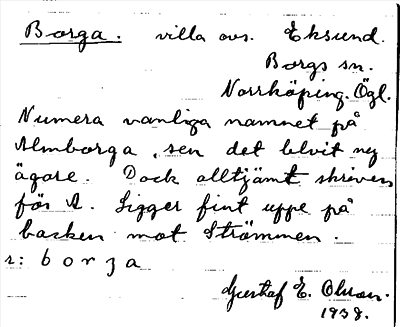 Borga. villa ovs. Eksund.
Borgs sn.
Norrköping. Ögl.
Numera vanliga namnet på
Almborga, sen det blvit ny
ägare. Dock alltjämt skriven
för A. Ligger fint uppe på
backen mot Strömmen.
r: borja
Gusthaf E. Olson.
1938.